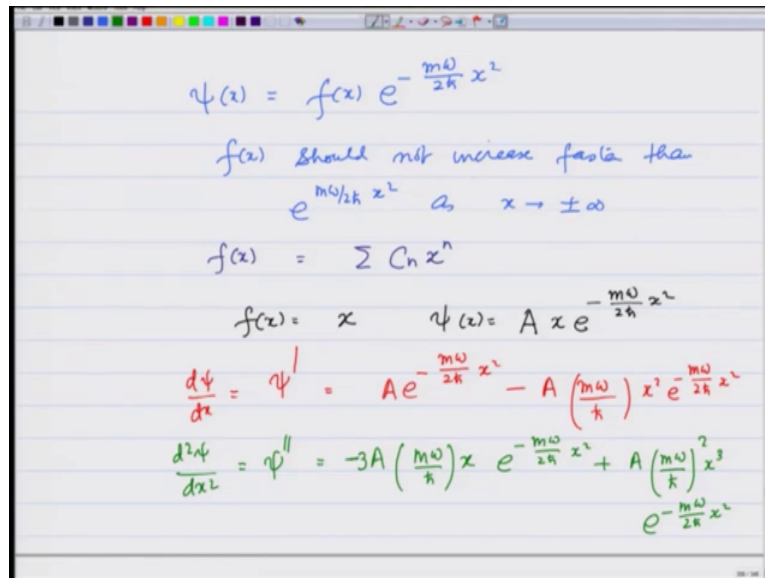 ψ(x) = f(x) e^{-\frac{mω}{2ħ} x^2}
f(x) should not increase faster than
e^{mω/2ħ x^2} as x → ± ∞
f(x) = Σ C_n x^n
f(x) = x ψ(x) = A x e^{-\frac{mω}{2ħ} x^2}
\frac{dψ}{dx} = ψ^| = A e^{-\frac{mω}{2ħ} x^2} - A (\frac{mω}{ħ}) x^2 e^{-\frac{mω}{2ħ} x^2}
\frac{d^2ψ}{dx^2} = ψ^{||} = -3A (\frac{mω}{ħ}) x e^{-\frac{mω}{2ħ} x^2} + A (\frac{mω}{ħ})^2 x^3
e^{-\frac{mω}{2ħ} x^2}